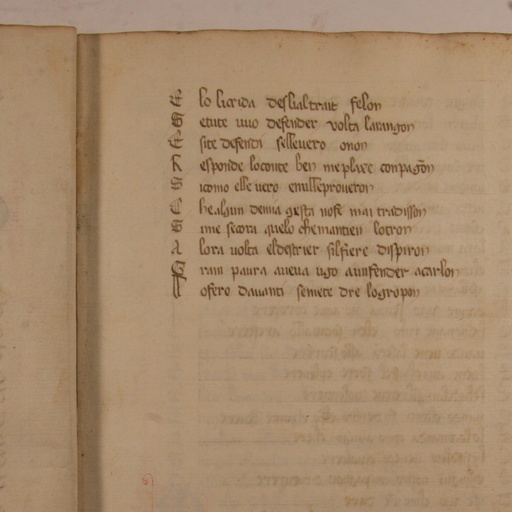 E lo licrida deslialtrait felon
S etute uuo defender volta larangon
E site defendi selleuero onon
R esponde loconte ben meplaxe conpagon
S icomo elle uero enulleproueron
C healgun demia gesta nose mai tradisson
S ime secora quelo chemantien lotron
A lora volta eldestrier silfiere dispiron
G ran paura aueua ugo auinfender acarlon
A ofero dauanti semete dre logropon